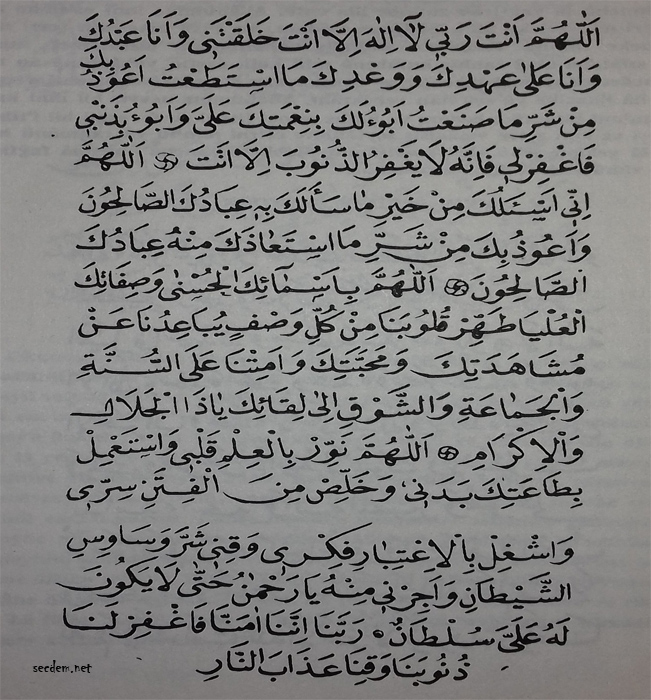 اَللّٰهُمَّ اَنْتَ رَبّ۪ي لَٓا اِلٰهَ اِلَّا اَنْتَ خَلَقْتَن۪ي وَاَنَا عَبْدُكَ
وَاَنَا عَلٰى عَهْدِكَ وَوَعْدِكَ مَا اسْتَطَعْتُ اَعُوذُ بِكَ
مِنْ شَرِّ مَا صَنَعْتُ اَبُوءُ لَكَ بِنِعْمَتِكَ عَلَيَّ وَاَبُوءُ بِذَنْب۪ي
فَاغْفِرْل۪ي فَاِنَّهُ لَا يَغْفِرُ الذُّنُوبَ اِلَّا اَنْتَ اَللّٰهُمَّ
اِنّ۪ي اَسْئَلُكَ مِنْ خَيْرِ مَا سَأَلَكَ بِه۪ عِبَادُكَ الصَّالِحُونَ
وَاَعُوذُ بِكَ مِنْ شَرِّ مَا اسْتَعَاذَكَ مِنْهُ عِبَادُكَ
الصَّالِحُونَ اَللّٰهُمَّ بِاَسْمَائِكَ الْحُسْنٰى وَصِفَاتِكَ
الْعُلْيَا طَهِّرْ قُلُوبَنَا مِنْ كُلِّ وَصْفٍ يُبَاعِدُنَا عَنْ
مُشَاهَدَتِكَ وَمَحَبَّتِكَ وَاَمِتْنَا عَلَى السُّنَّةِ
وَالْجَمَاعَةِ وَالشَّوْقِ اِلٰى لِقَائِكَ يَاذَا الْجَلَالِ
وَالْاِكْرَامِ اَللّٰهُمَّ نَوِّرْ بِالْعِلْمِ قَلْب۪ي وَاسْتَعْمِلْ
بِطَاعَتِكَ بَدَن۪ي وَخَلِّصْ مِنَ الْفِتَنِ سِرّ۪ي
وَاشْغِلْ بِالْاِعْتِبَارِ فِكْر۪ي وَقِن۪ي شَرَّ وَسَاوِسِ
الشَّيْطَانِ وَاَجِرْن۪ي مِنْهُ يَا رَحْمٰنُ حَتّٰى لَا يَكُونَ
لَهُ عَلَيَّ سُلْطَانٌ رَبَّنَا اِنَّنَا اٰمَنَّا فَاغْفِرْ لَنَا
ذُنُوبَنَا وَقِنَا عَذَابَ النَّارِ
secdem.net